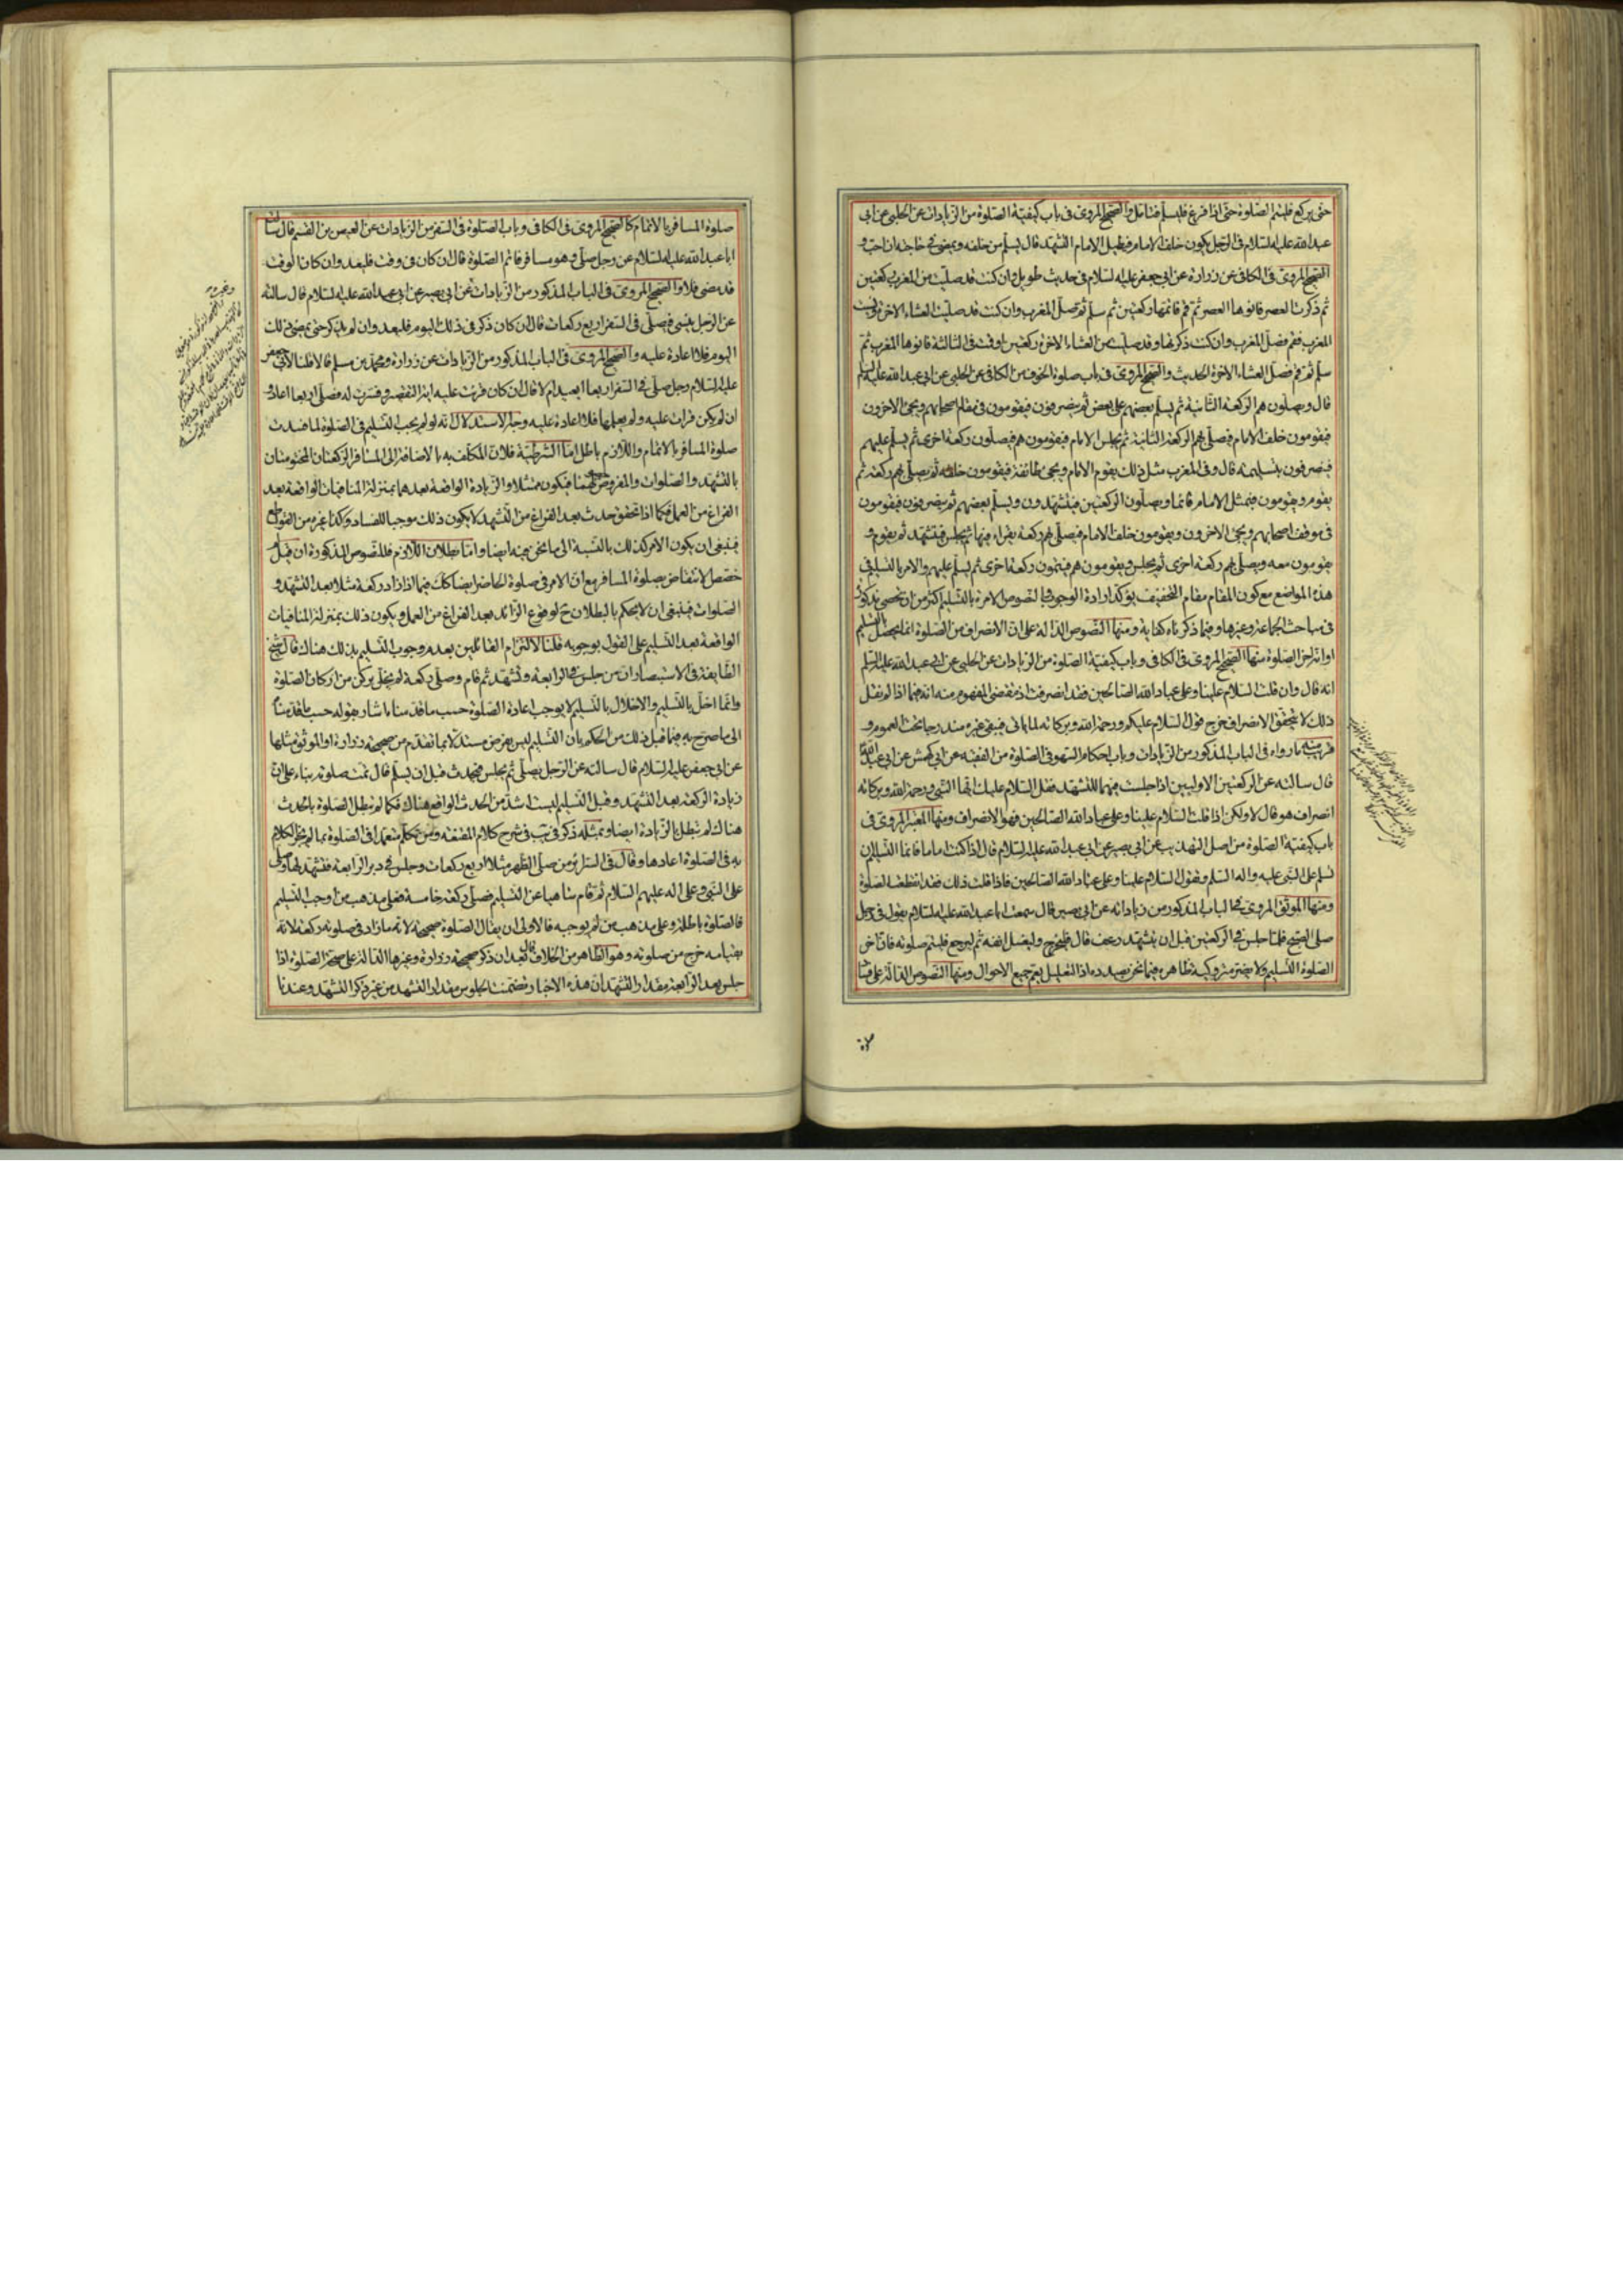 حتى يركع فليتم الصلوة حتى اذا فرغ فليسلم فتامل والصحيح المروى فى باب كيفية الصلوة من الزيادات عن الحلبى عن ابى
عبد الله عليه السلام فى الرجل يكون خلف الامام فيطيل الامام التشهد قال يسلم من خلفه ويمضى فى حاجته ان احب و
الصحيح المروى فى الكافى عن زرارة عن ابى جعفر عليه السلام فى حديث طويل وان كنت قد صليت من المغرب ركعتين
ثم ذكرت العصر فانوها العصر ثم قم فاتمها ركعتين ثم سلم ثم تصلى المغرب وان كنت قد صليت العشاء الاخرة ونسيت
المغرب فقم فصل المغرب وان كنت ذكرتها وقد صليت من العشاء الاخرة ركعتين او قمت فى الثالثة فانوها المغرب ثم
سلم ثم قم فصل العشاء الاخرة الحديث والصحيح المروى فى باب صلوة الخوف من الكافى عن الحلبى عن ابى عبد الله عليه السلام
قال ويصلون هم الركعة الثانية ثم يسلم بعضهم على بعض ثم ينصرفون فيقومون فى مقام اصحابهم ويجئ الاخرون
فيقومون خلف الامام فيصلى بهم الركعة الثانية ثم يجلس الامام فيقومون هم فيصلون ركعة اخرى ثم يسلم عليهم
فينصرفون بتسليمه قال وفى المغرب مثل ذلك يقوم الامام ويجئ طائفة فيقومون خلفه ثم يصلى بهم ركعة ثم
يقوم ويقومون فيمثل الامام قائما ويصلون الركعتين فيتشهدون ويسلم بعضهم ثم ينصرفون فيقومون
فى موقف اصحابهم ويجئ الاخرون ويقومون خلف الامام فيصلى بهم ركعة يقراء فيها ثم يجلس فيتشهد ثم يقوم و
يقومون معه ويصلى بهم ركعة اخرى ثم يجلس ويقومون هم فيتمون ركعة اخرى ثم يسلم عليهم والامر بالتسليم فى
هذه المواضع مع كون المقام مقام التخفيف يؤكد ارادة الوجوب والنصوص الامرة بالتسليم اكثر من ان تحصى مذكورة
فى مباحث الجماعة وغيرها وفيما ذكرناه كفاية ومنها النصوص الدالة على ان الانصراف من الصلوة انما يحصل بالتسليم
او انه اخر الصلوة منها الصحيح المروى فى الكافى وباب كيفية الصلوة من الزيادات عن الحلبى عن ابى عبد الله عليه السلم
انه قال وان قلت السلام علينا وعلى عباد الله الصالحين فقد انصرفت اذ مقتضى المفهوم منه انه فيما اذا لم يقل
ذلك لا يتحقق الانصراف خرج قول السلام عليكم ورحمة الله وبركاته لما ياتى فيبقى غيره مندرجا تحت العموم و
قريب منه مارواه فى الباب المذكور من الزيادات وباب احكام السهو فى الصلوة من الفقيه عن ابى كهمش عن ابى عبد الله
قال سالته عن الركعتين الاوليين اذا جلست فيهما للتشهد فقلت السلام عليك ايها النبى ورحمة الله وبركاته
انصراف هو قال لا ولكن اذا قلت السلام علينا وعلى عباد الله الصالحين فهو الانصراف ومنها المعتبر المروى فى
باب كيفية الصلوة من اصل التهذيب عن ابى بصير عن ابى عبد الله عليه السلام قال اذا كنت اماما فانما التسليم ان
تسلم على النبى عليه واله السلم وتقول السلام علينا وعلى عباد الله الصالحين فاذا قلت ذلك فقد انقطعت الصلوة
ومنها الموثق المروى فى الباب المذكور من زياداته عن ابى بصير قال سمعت ابا عبد الله عليه السلام يقول فى رجل
صلى الصبح فلما جلس فى الركعتين قبل ان يتشهد رعف قال فليخرج وليغسل انفه ثم ليرجع فليتم صلوته فان اخر
الصلوة التسليم ولا يضر متروكية ظاهره فيما نحن بصدده اذ التعليل يعم جميع الاحوال ومنها النصوص الدالة على فساد
صلوة
صلوة المسافر بالاتمام كالصحيح المروى فى الكافى وباب الصلوة فى السفر من الزيادات عن العيص بن القسم قال سالت
ابا عبد الله عليه السلام عن رجل صلى وهو مسافر فاتم الصلوة قال ان كان فى وقت فليعد وان كان الوقت
قد مضى فلا والصحيح المروى فى الباب المذكور من الزيادات عن ابى بصير عن ابى عبد الله عليه السلام قال سالته
عن الرجل ينسى فيصلى فى السفر اربع ركعات قال ان كان ذكر فى ذلك اليوم فليعد وان لم يذكر حتى يمضى ذلك
اليوم فلا اعادة عليه والصحيح المروى فى الباب المذكور من الزيادات عن زرارة ومحمد بن مسلم قالا قلنا لابى جعفر
عليه السلام رجل صلى فى السفر اربعا ايعيد ام لا قال ان كان قرئت عليه اية التقصير وفسرت له فصلى اربعا اعاد و
ان لم يكن قرات عليه ولم يعلمها فلا اعادة عليه وجه الاستدلال انه لو لم يجب التسليم فى الصلوة لما فسدت
صلوة المسافر بالاتمام واللازم باطل اما الشرطية فلان المكلف به بالاضافة الى المسافر الركعتان المختومتان
بالتشهد والصلوات والمفروض تحققهما فيكون ممتثلا والزيادة الواقعة بعدهما بمنزلة المنافيات الواقعة بعد
الفراغ من العمل فكما اذا تحقق حدث بعد الفراغ من التشهد لا يكون ذلك موجبا للفساد وكذا غيره من القواطع
فينبغى ان يكون الامر كذلك بالنسبة الى ما نحن فيه ايضا واما بطلان اللازم فللنصوص المذكورة ان قيل
خصص الانتقاض بصلوة المسافر مع ان الامر فى صلوة الحاضر ايضا كك فيما اذا زاد ركعة مثلا بعد التشهد و
الصلوات فينبغى ان لا يحكم بالبطلان ح لوقوع الزائد بعد الفراغ من العمل ويكون ذلك بمنزلة المنافيات
الواقعة بعد التسليم على القول بوجوبه قلنا لالتزام القائلين بعدم وجوب التسليم بذلك هناك قال شيخ
الطايفة فى الاستبصار ان من جلس فى الرابعة وتشهد ثم قام وصلى ركعة لم يخل بركن من اركان الصلوة
وانما اخل بالتسليم والاخلال بالتسليم لا يوجب اعادة الصلوة حسب ما قدمناه اشار بقوله حسب ما قدمناه
الى ما صرح به فيما قبل ذلك من الحكم بان التسليم ليس بفرض مستدلا بما تقدم من صحيحة زرارة او الموثق مثلها
عن ابى جعفر عليه السلام قال سالته عن الرجل يصلى ثم يجلس فيحدث قبل ان يسلم قال تمت صلوته بناء على ان
زيادة الركعة بعد التشهد وقبل التسليم ليست اشد من الحدث الواقع هناك فكما لم تبطل الصلوة بالحدث
هناك لم تبطل بالزيادة ايضا وبمثله ذكر فى يب فى شرح كلام المقنعة ومن تكلم متعمدا فى الصلوة بما لم يجز الكلام
به فى الصلوة اعادها وقال فى السرائر من صلى الظهر مثلا اربع ركعات وجلس فى دبر الرابعة فتشهد لها وصلى
على النبى وعلى اله عليهم السلام ثم قام ساهيا عن التسليم فصلى ركعة خامسة فعلى مذهب من اوجب التسليم
فالصلوة باطلة وعلى مذهب من لم يوجبه فالاولى ان يقال الصلوة صحيحة لانه ما زاد فى صلوته ركعة لانه
بقيامه خرج من صلوته وهو الظاهر من الخلاف قال بعد ان ذكر صحيحة زرارة وغيرها الدالة على صحة الصلوة اذا
جلس بعد الرابعة مقدار التشهد ان هذه الاخبار تضمنت الجلوس مقدار التشهد من غير ذكر التشهد وعندنا